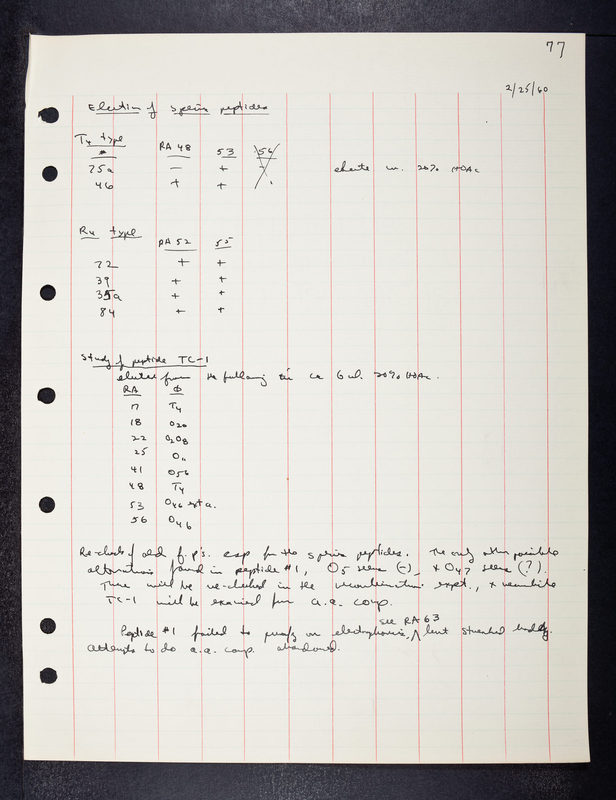 77
2/25/60
Elution of specific peptides
T4 type
# RA 48 53 56
25a – + –
46 + +
elute w. 20% HOAc
R4 type
RA 52 55
22 + +
39 + +
35a + +
84 + +
Study of peptide TC-1
eluted from the following in ca 6 ml. 20% HOAc.
RA Φ
17 T4
18 O20
22 O208
25 O11
41 O56
48 T4
53 O46 ext a.
56 O46
Re-check of old f.p's. esp for the specific peptides. The only other possible
alterations found in peptide #1, O5 seems (-), + O47 seems (?).
These will be re-checked in the recombination expt., +
TC-1 will be examined for a.a. comp.
see RA 63
Peptide #1 failed to purify on electrophoresis, but streaked badly.
Attempts to do a.a. comp. abandoned.